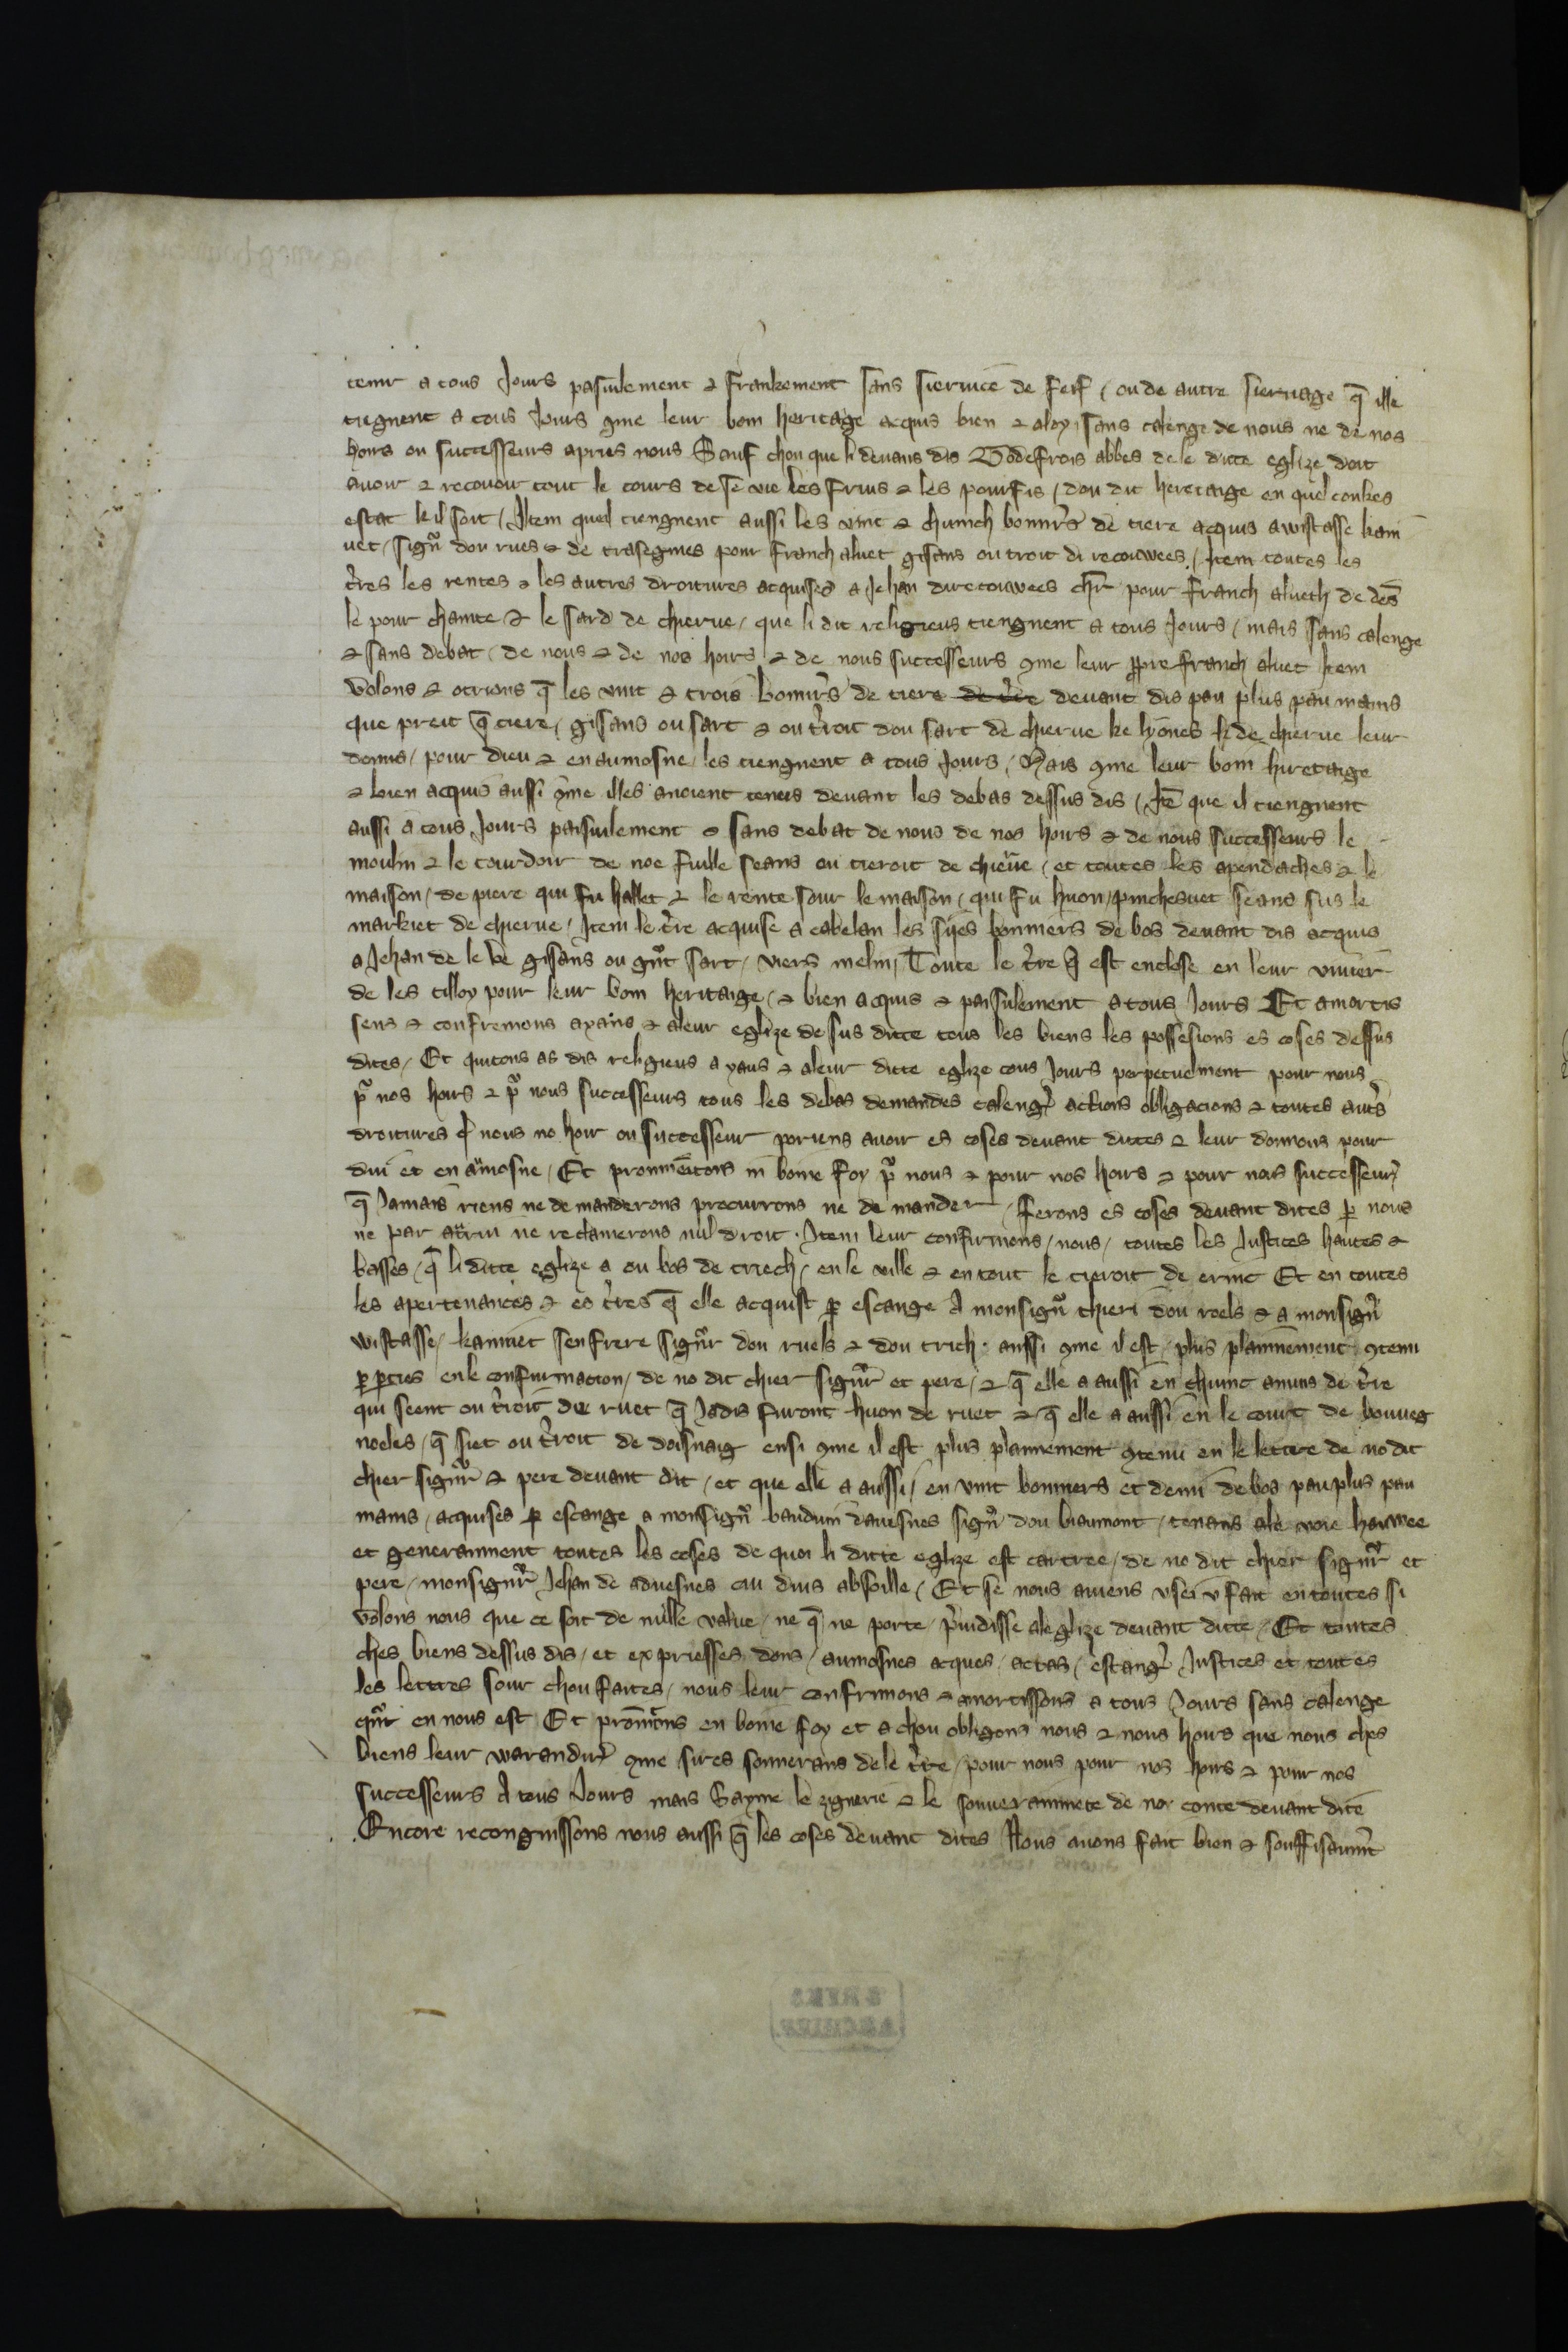 tenir a tous Jours pasiulement ⁊ frankement sans siervice de fief / ou de autre siervage q̄ ille
tiegnent a tous Jours ꝯme leur bom heritage acquis bien ⁊ aloy / sans calenge de nous ne de nos
hoirs ou successeurs apries nous Sauf chou que li devans dis Godefrois abbes de le ditte eglize doit
avoir ⁊ recevoir tout le cours de se vie les fruis ⁊ les pourfis / dou dit heretaige en quel conkes
estat kil soit / Item quil tiengnent aussi les vint ⁊ chuinch bonnirs de tiere acquis a wistasse kain
uet / signr dou rues ⁊ de trasegnies pour franch aluet gisans ou troit di recouwees / Item toutes les
tres les rentes ⁊ les autres droitures acquises a Jehan direcouwees chr pour franch alueth de des
le pour chainte ⁊ le sard de chierve / que li dit religieus tiengnent a tous Jours / mais sans calenge
⁊ sans debat / de nous ⁊ de nos hoirs ⁊ de nous successeurs ꝯme leur ꝓpre franch aluet Item
Volons ⁊ otrions q̄ les vint ⁊ trois bonnirs de tiere de tre devant dis pau plus pau mains
que preit q̄ tiere / gisans ou sart ⁊ ou troit dou sart de chierve ke hyones de chierve leur
donna / pour dieu ⁊ en aumosne / les tiengnent a tous Jours / Mais ꝯme leur bom hiretaige
⁊ bien acquis aussi ꝯme illes avoient tenus devant les debas dessus dis / Ite que il tiengnent
aussi a tous Jours paisiulement ⁊ sans debat de nous de nos hoirs ⁊ de nous successeurs le
moulin ⁊ le tourdoir de noe fuille seans ou tieroit de chieve / et toutes les apendaches ⁊ le
maison / de piere qui fu hallet ⁊ le rente sour le maison / qui fu huon / pinchevet seans sus le
markiet de chierve / Item le tre acquise a cabelan les siies bonniers de bos devant dis acquis
a Jehan de le gisans ou gnt sart / viers melin / Toute le tre q̄ est enclose en leur vivier
de les tilloy pour leur bom heritaige / ⁊ bien acquis ⁊ paisulement a tous Jours Et amortis
sens ⁊ confremons ayaus ⁊ aleur eglize desus ditte tous les biens les possesions es coses dessus
dites / Et quitons as dis religieus a yaus ⁊ aleur ditte eglize tous Jours perpetuelment pour nous
pr nos hoirs ⁊ pr nous successeurs tous les debas demandes caleng actions obligacions ⁊ toutes auts
droitures q nous no hoir ou successeur poriens avoir es coses devant dittes ⁊ leur donnons pour
diu et en amosne / Et prommetons in bonne foy pr nous ⁊ pour nos hoirs ⁊ pour nos successeur
q̄ Jamais riens ne demanderons procurrons ne demander / ferons es coses devant dites ꝑ nous
ne par atrui ne reclamerons nul droit . Item leur confirmons / nous / toutes les Justices hautes ⁊
basses / q̄ li ditte eglize a ou bos de triech / en le ville ⁊ en tout le tieroit de erinc Et en toutes
les apertenances ⁊ es tres q̄ elle acquist ꝑ escange A monsignr thieri dou roels ⁊ a monsignr
wistasse / kanniet sen frere signr dou ruels ⁊ dou trich . aussi ꝯme il est / plus plainnement ꝯtenu
en le confirmation / de no dit chier signr et pere / ⁊ q̄ elle a aussi en chuinc de tre
qui seent ou troit du ruet q̄ Jadis furont huon de ruet ⁊ q̄ elle a aussi en le court de bouveg
noeles / q̄ siet ou troit de doisnaig ensi ꝯme il est plus plannement ꝯtenu en le lettre de no dit
chier signr ⁊ pere devant dit / et que elle a aussi / en vint bonniers et demi de bos pau plus pau
mains / acquises ꝑ escange a monsignr bauduin davesnes signr dou biaumont / tenans ale voie harwee
et generaument toutes les coses de quoi li ditte eglize est cartree / de no dit chier signr et
pere / monsignr Jehan de advesnes cui dius absoille / Et se nous aviens usei u fait en toutes si
volons nous que ce soit de nulle value / ne q̄ ne porte / priudisse aleglize devant ditte / Et toutes
ches biens dessus dis / et expriesses dons / aumosnes acques / actas / escang Justices et toutes
les lettres sour chou faites / nous leur confrimons ⁊ amortissons a tous Jours sans calenge
en nous est Et promtons en bonne foy et a chou obligons nous ⁊ nous hoirs que nous ches
biens leur warandir ꝯme sires souverans de le tre / pour nous pour nos hoirs ⁊ pour nos
successeurs A tous Jours mais Sayne le zignerie ⁊ le souverainnete de no conte devant dite
Encore recongnissons nous aussi q̄ les coses devant dites Nous avons fait bien ⁊ souffisaumt